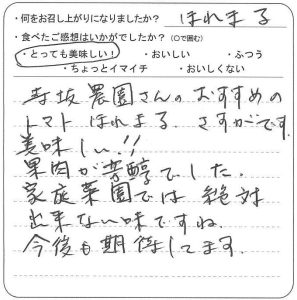 ・何をお召し上がりになりましたか？ ほれまる
・食べたご感想はいかがでしたか？（○で囲む）
・とっても美味しい！ ・おいしい ・ふつう
・ちょっとイマイチ ・おいしくない
寿坂農園さんのおすすめの
トマト ほれまる。さすがです
美味しい!!
果肉が芳醇でした。
家庭菜園では絶対
出来ない味ですね。
今後も期待してます。